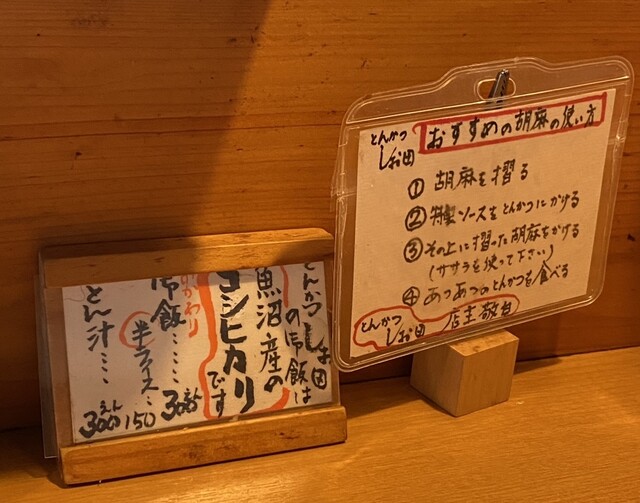 とんかつ しお田
おすすめの胡麻の使い方
① 胡麻を摺る
② 特製ソースをとんかつにかける
③ その上に摺った胡麻をかける
(ササラを使って下さい)
④ あつあつのとんかつを食べる
とんかつ しお田 店主敬白
とんかつ しお田
の御飯は
魚沼産の
コシヒカリ
です
おかわり
御飯……300えん
半ライス…150
とん汁…300えん